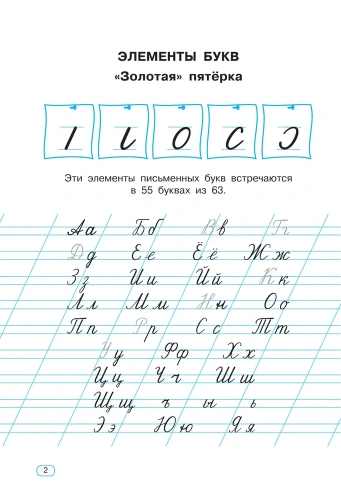 ЭЛЕМЕНТЫ БУКВ
«Золотая» пятёрка
Эти элементы письменных букв встречаются
в 55 буквах из 63.
Аа Бб Вв Гг
Дд Ее Ёё Жж
Зз Ии Йй Кк
Лл Мм Нн Оо
Пп Рр Сс Тт
Уу Фф Хх
Цц Чч Шш
Щщ ъ ы ь
Ээ Юю Яя
2